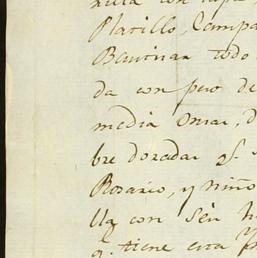 con
Platillo, Campa
Bautizar todo
da con peso de
media onza, d
bre doradas q.
Rosario, y niño
lla con seu h
q. tiene esta p